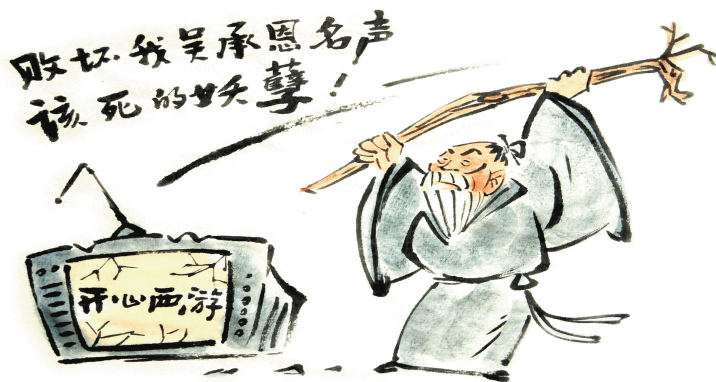 败坏我吴承恩名声
该死的妖孽！
开心西游